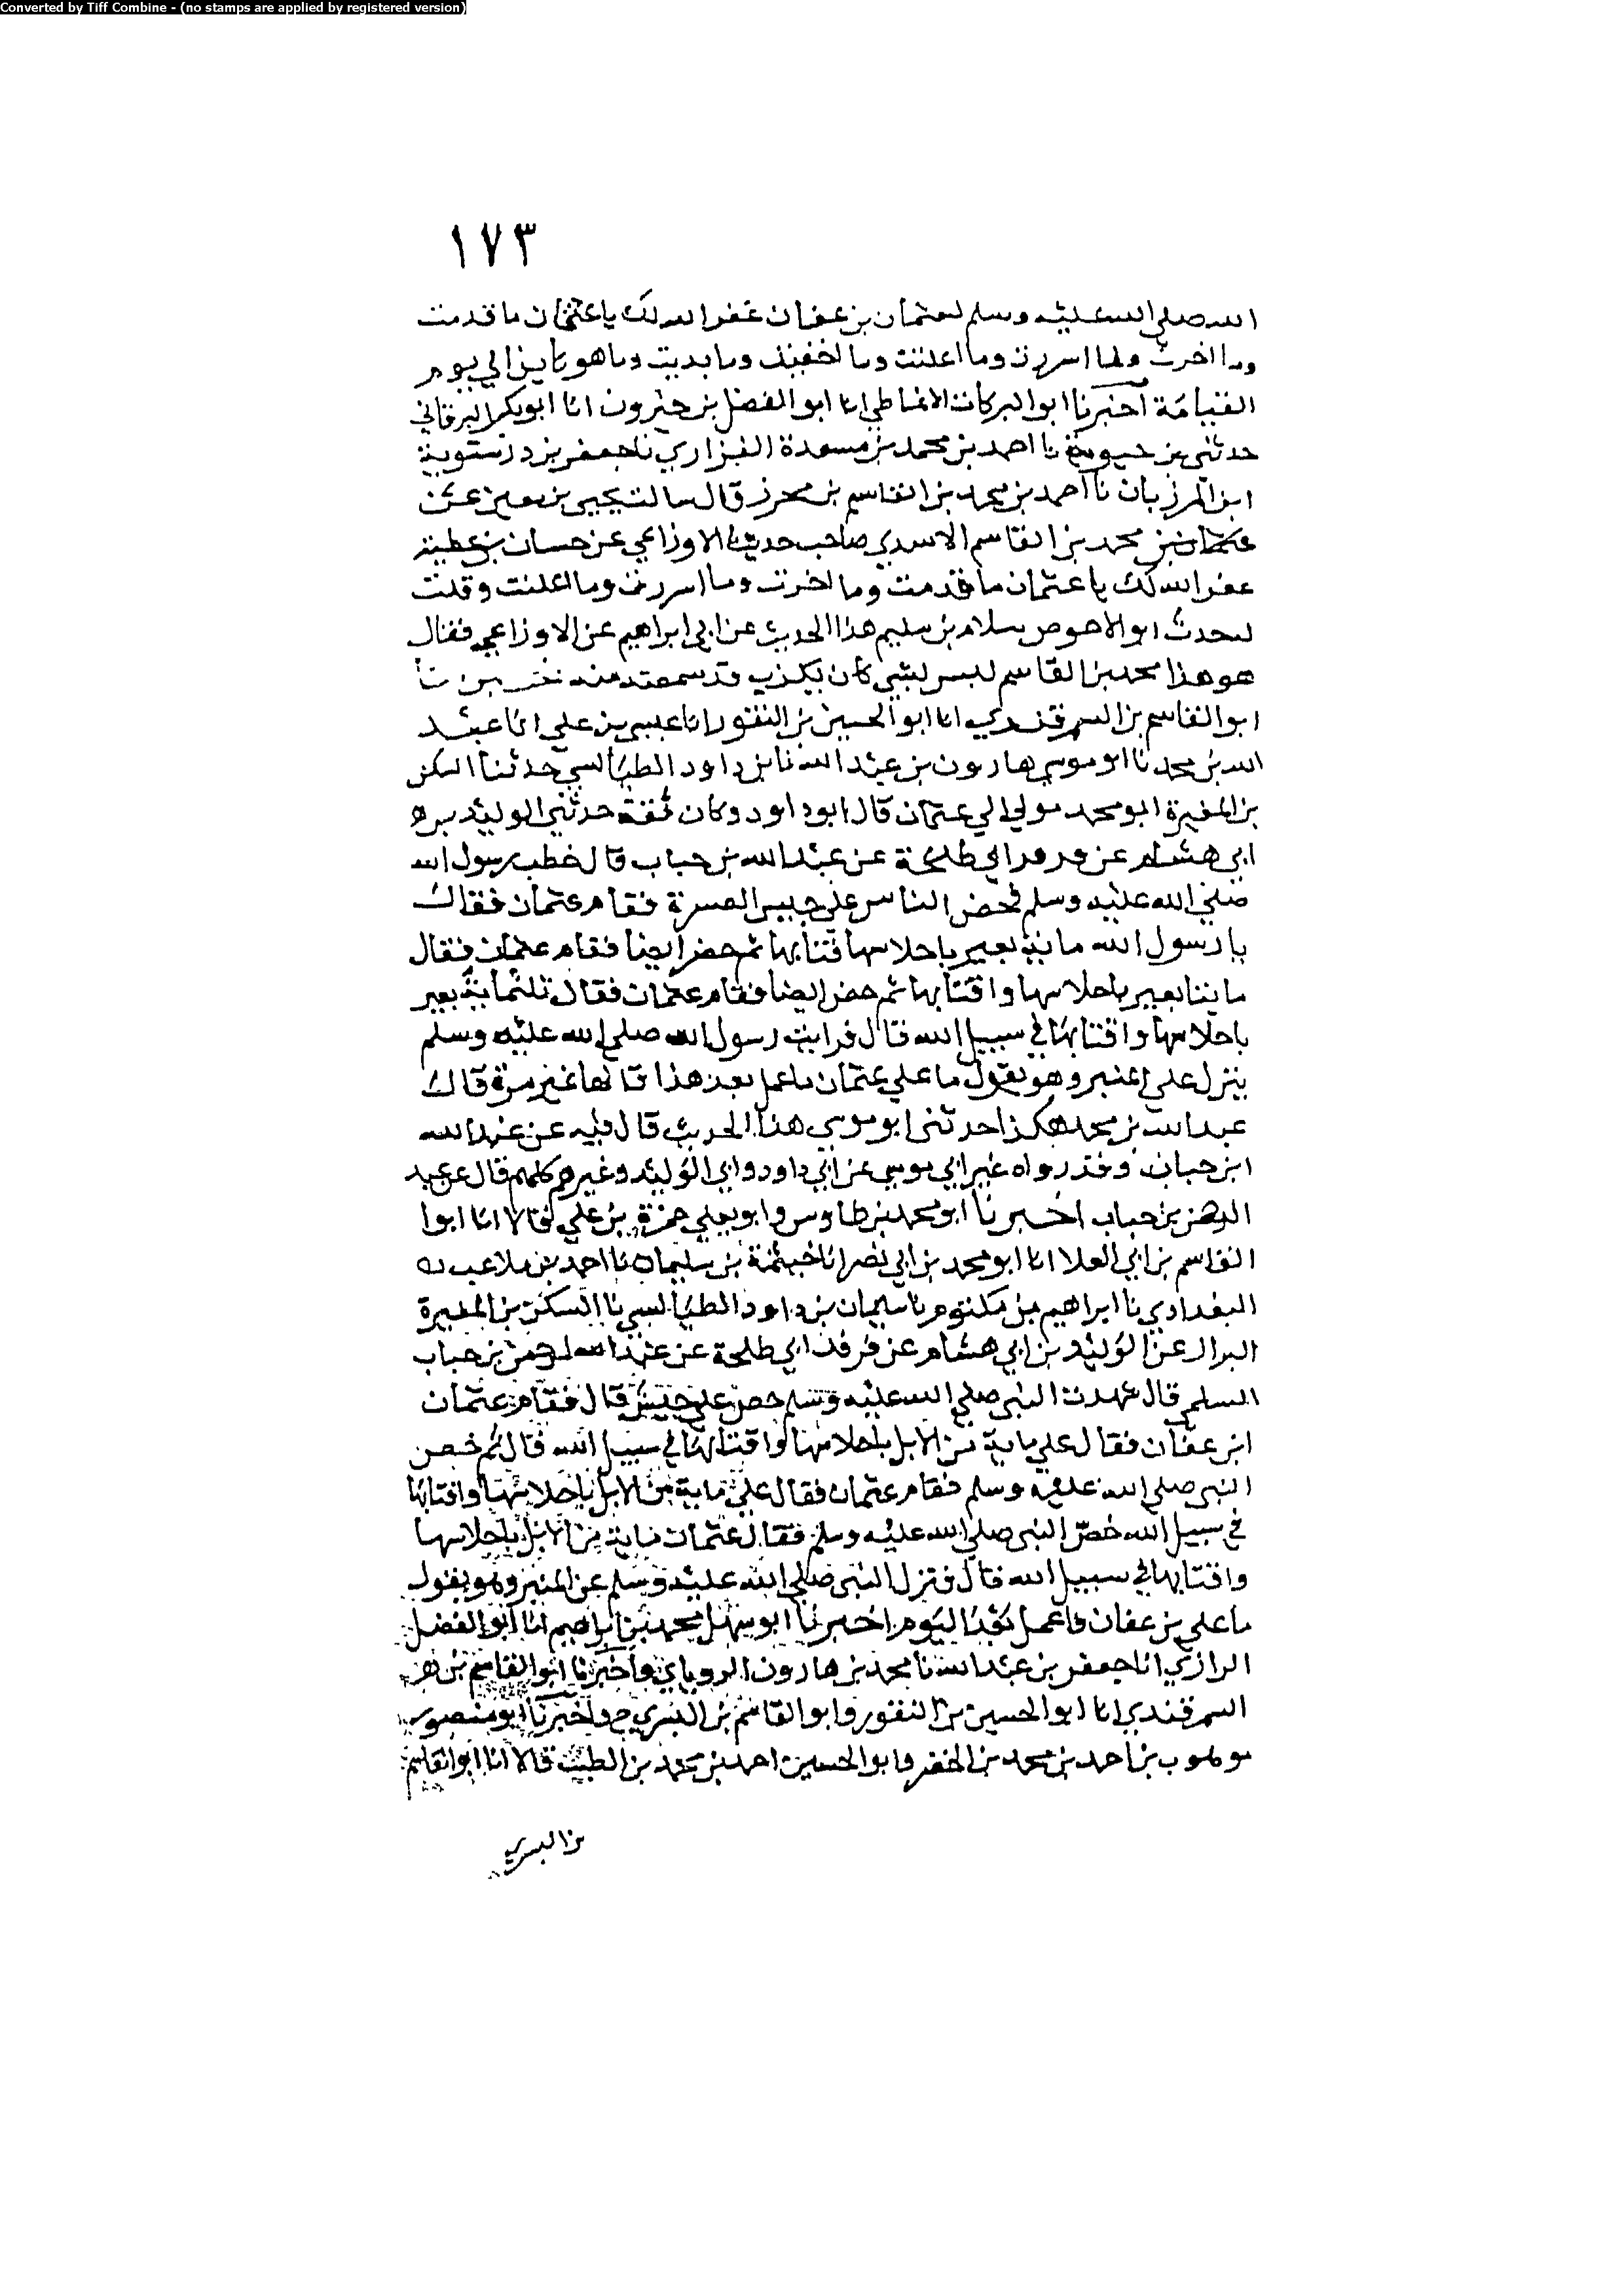 Converted by Tiff Combine - (no stamps are applied by registered version)
١٧٣
الله صلى الله عليه وسلم لعثمان بن عفان غفر الله لك يا عثمان ما قدمت
وما اخرت وما اسررت وما اعلنت وما اخفيت وما بديت وما هو كاين الي يوم
القيامة اخبرنا ابو البركات الانماطي انا ابو الفضل بن خيرون انا ابو بكر البرقاني
حدثني بن حيوية نا احمد بن محمد بن مسعدة الفزاري نا جعفر بن درستوية
ابن المرزبان نا احمد بن محمد بن القاسم بن محرز قال سالت يحيى بن معين عن
عثمان بن محمد بن القاسم الاسدي صاحب حديث الاوزاعي عن حسان بن عطية
غفر الله لك يا عثمان ما قدمت وما اخرت وما اسررت وما اعلنت وقلت
لحدث ابو الاحوص سلام بن سليم هذا الحديث عن ابي ابراهيم عن الاوزاعي فقال
هو هذا محمد بن القاسم ليس بشي كان يكذب قد سمعت منه
ابو القاسم بن السمرقندي انا ابو الحسين بن النقور انا عيسى بن علي انا عبد
الله بن محمد نا ابو موسى هارون بن عبد الله نا بن داود الطيالسي حدثنا السكن
بن المغيرة ابو محمد مولي الي عثمان قال ابو داود وكان ثقة حدثني الوليد بن
ابي هشام عن فرقد ابي طلحة عن عبد الله بن حباب قال خطب رسول الله
صلي الله عليه وسلم فحض الناس علي جيش العسرة فقام عثمان فقال
يا رسول الله ماية بعير باحلاسها واقتابها ثم حض ايضا فقام عثمان فقال
مايتا بعير باحلاسها واقتابها ثم حض ايضا فقام عثمان فقال ثلثماية بعير
باحلاسها واقتابها في سبيل الله قال فرايت رسول الله صلى الله عليه وسلم
ينزل علي المنبر وهو يقول ما علي عثمان ما عمل بعد هذا قالها غير مرة قال
عبد الله بن محمد هكذا حدثني ابو موسي هذا الحديث قال فيه عن عبد الله
ابن حباب وقد رواه غير ابي موسي عن ابي داود وابي الوليد وغيرهم كلهم قال عن عبد
الرحمن بن حباب اخبرنا ابو محمد بن طاوس وابو يعلي حمزة بن علي قالا انا ابوا
القاسم بن ابي العلا انا ابو محمد بن ابي نصر انا خيثمة بن سليمان نا احمد بن ملاعب
البغدادي نا ابراهيم بن مكتوم نا سليمان بن داود الطيالسي نا السكن بن المغيرة
البزار عن الوليد بن ابي هشام عن فرقد ابي طلحة عن عبد الرحمن بن حباب
السلمي قال شهدت النبي صلي الله عليه وسلم حض علي جيش قال فقام عثمان
ابن عفان فقال علي ماية من الابل باحلاسها واقتابها في سبيل الله قال ثم حض
النبي صلي الله عليه وسلم فقام عثمان فقال علي ماية من الابل باحلاسها واقتابها
في سبيل الله حض النبي صلي الله عليه وسلم فقال عثمان ماية من الابل باحلاسها
واقتابها في سبيل الله قال فنزل النبي صلي الله عليه وسلم عن المنبر وهو يقول
ما علي بن عفان ما عمل بعد اليوم اخبرنا ابو سهل محمد بن ابراهيم انا ابو الفضل
الرازي انا جعفر بن عبد الله نا محمد بن هارون الروياني واخبرنا ابو القاسم بن
السمرقندي انا ابو الحسين بن النقور وابو القاسم بن البسري ح واخبرنا ابو منصور
موهوب بن احمد بن محمد بن الخضر وابو الحسين احمد بن محمد بن الطيب قالا انا ابو القاسم
بن البسري